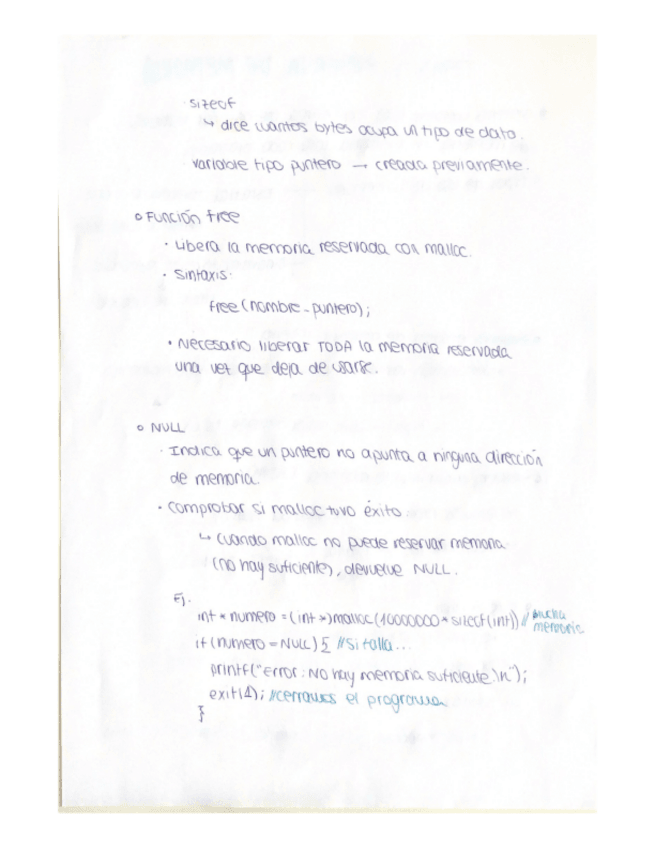 sizeof
↳ dice cuantos bytes ocupa un tipo de dato.
variable tipo puntero → creada previamente.
o Función free
· Libera la memoria reservada con malloc.
· Sintaxis:
free(nombre_puntero);
· Necesario liberar TODA la memoria reservada
una vez que deja de usarse.
o NULL
· Indica que un puntero no apunta a ninguna dirección
de memoria.
· comprobar si malloc tuvo éxito.
↳ cuando malloc no puede reservar memoria
(no hay suficiente), devuelve NULL.
Ej.
int * numero = (int *)malloc(10000000 * sizeof(int)) // Mucha
memoria
if (numero = NULL) { // Si falla...
printf("error: No hay memoria suficiente \n");
exit(1); // cerramos el programa
}